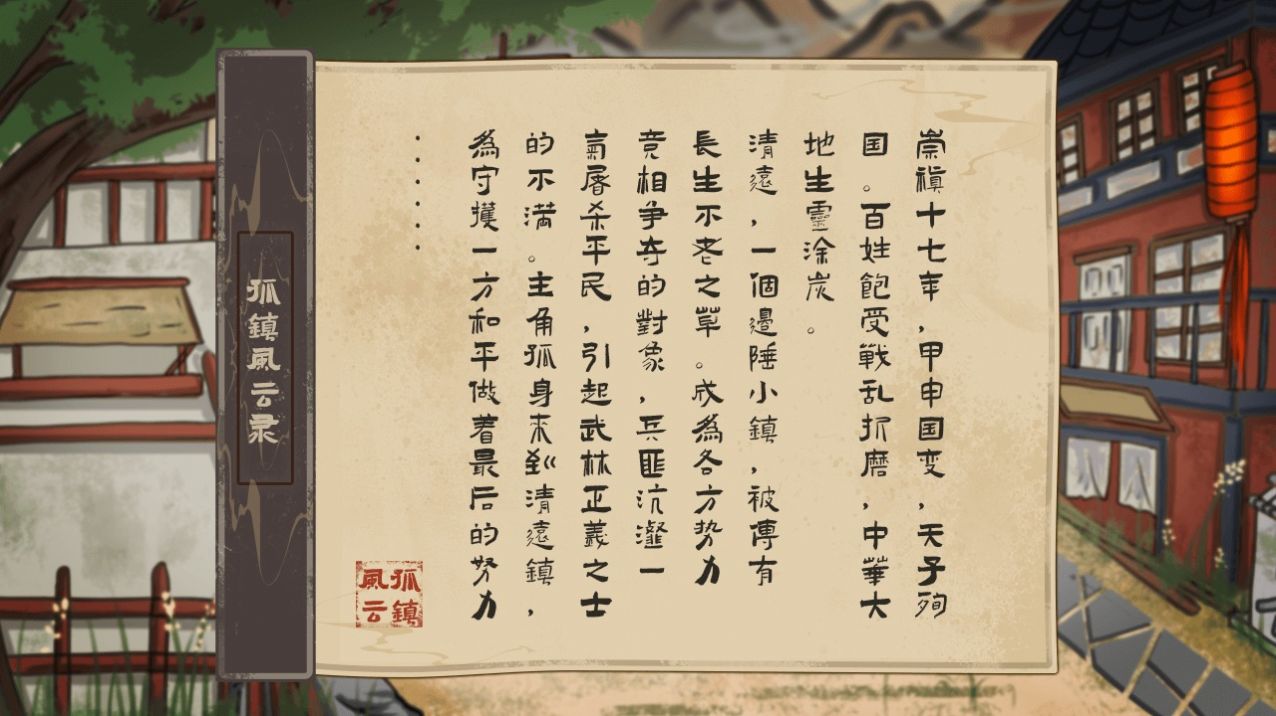 崇禎十七年，甲申国变，天子殉
国。百姓飽受戰乱折磨，中華大
地生靈涂炭。
清遠，一個邊陲小鎮，被傳有
長生不老之草。成為各方势力
竞相争夺的對象，兵匪沆瀣一
氣屠杀平民，引起武林正義之士
的不满。主角孤身来到清遠鎮，
為守護一方和平做着最后的努力
······
孤鎮風云录
孤鎮
風云